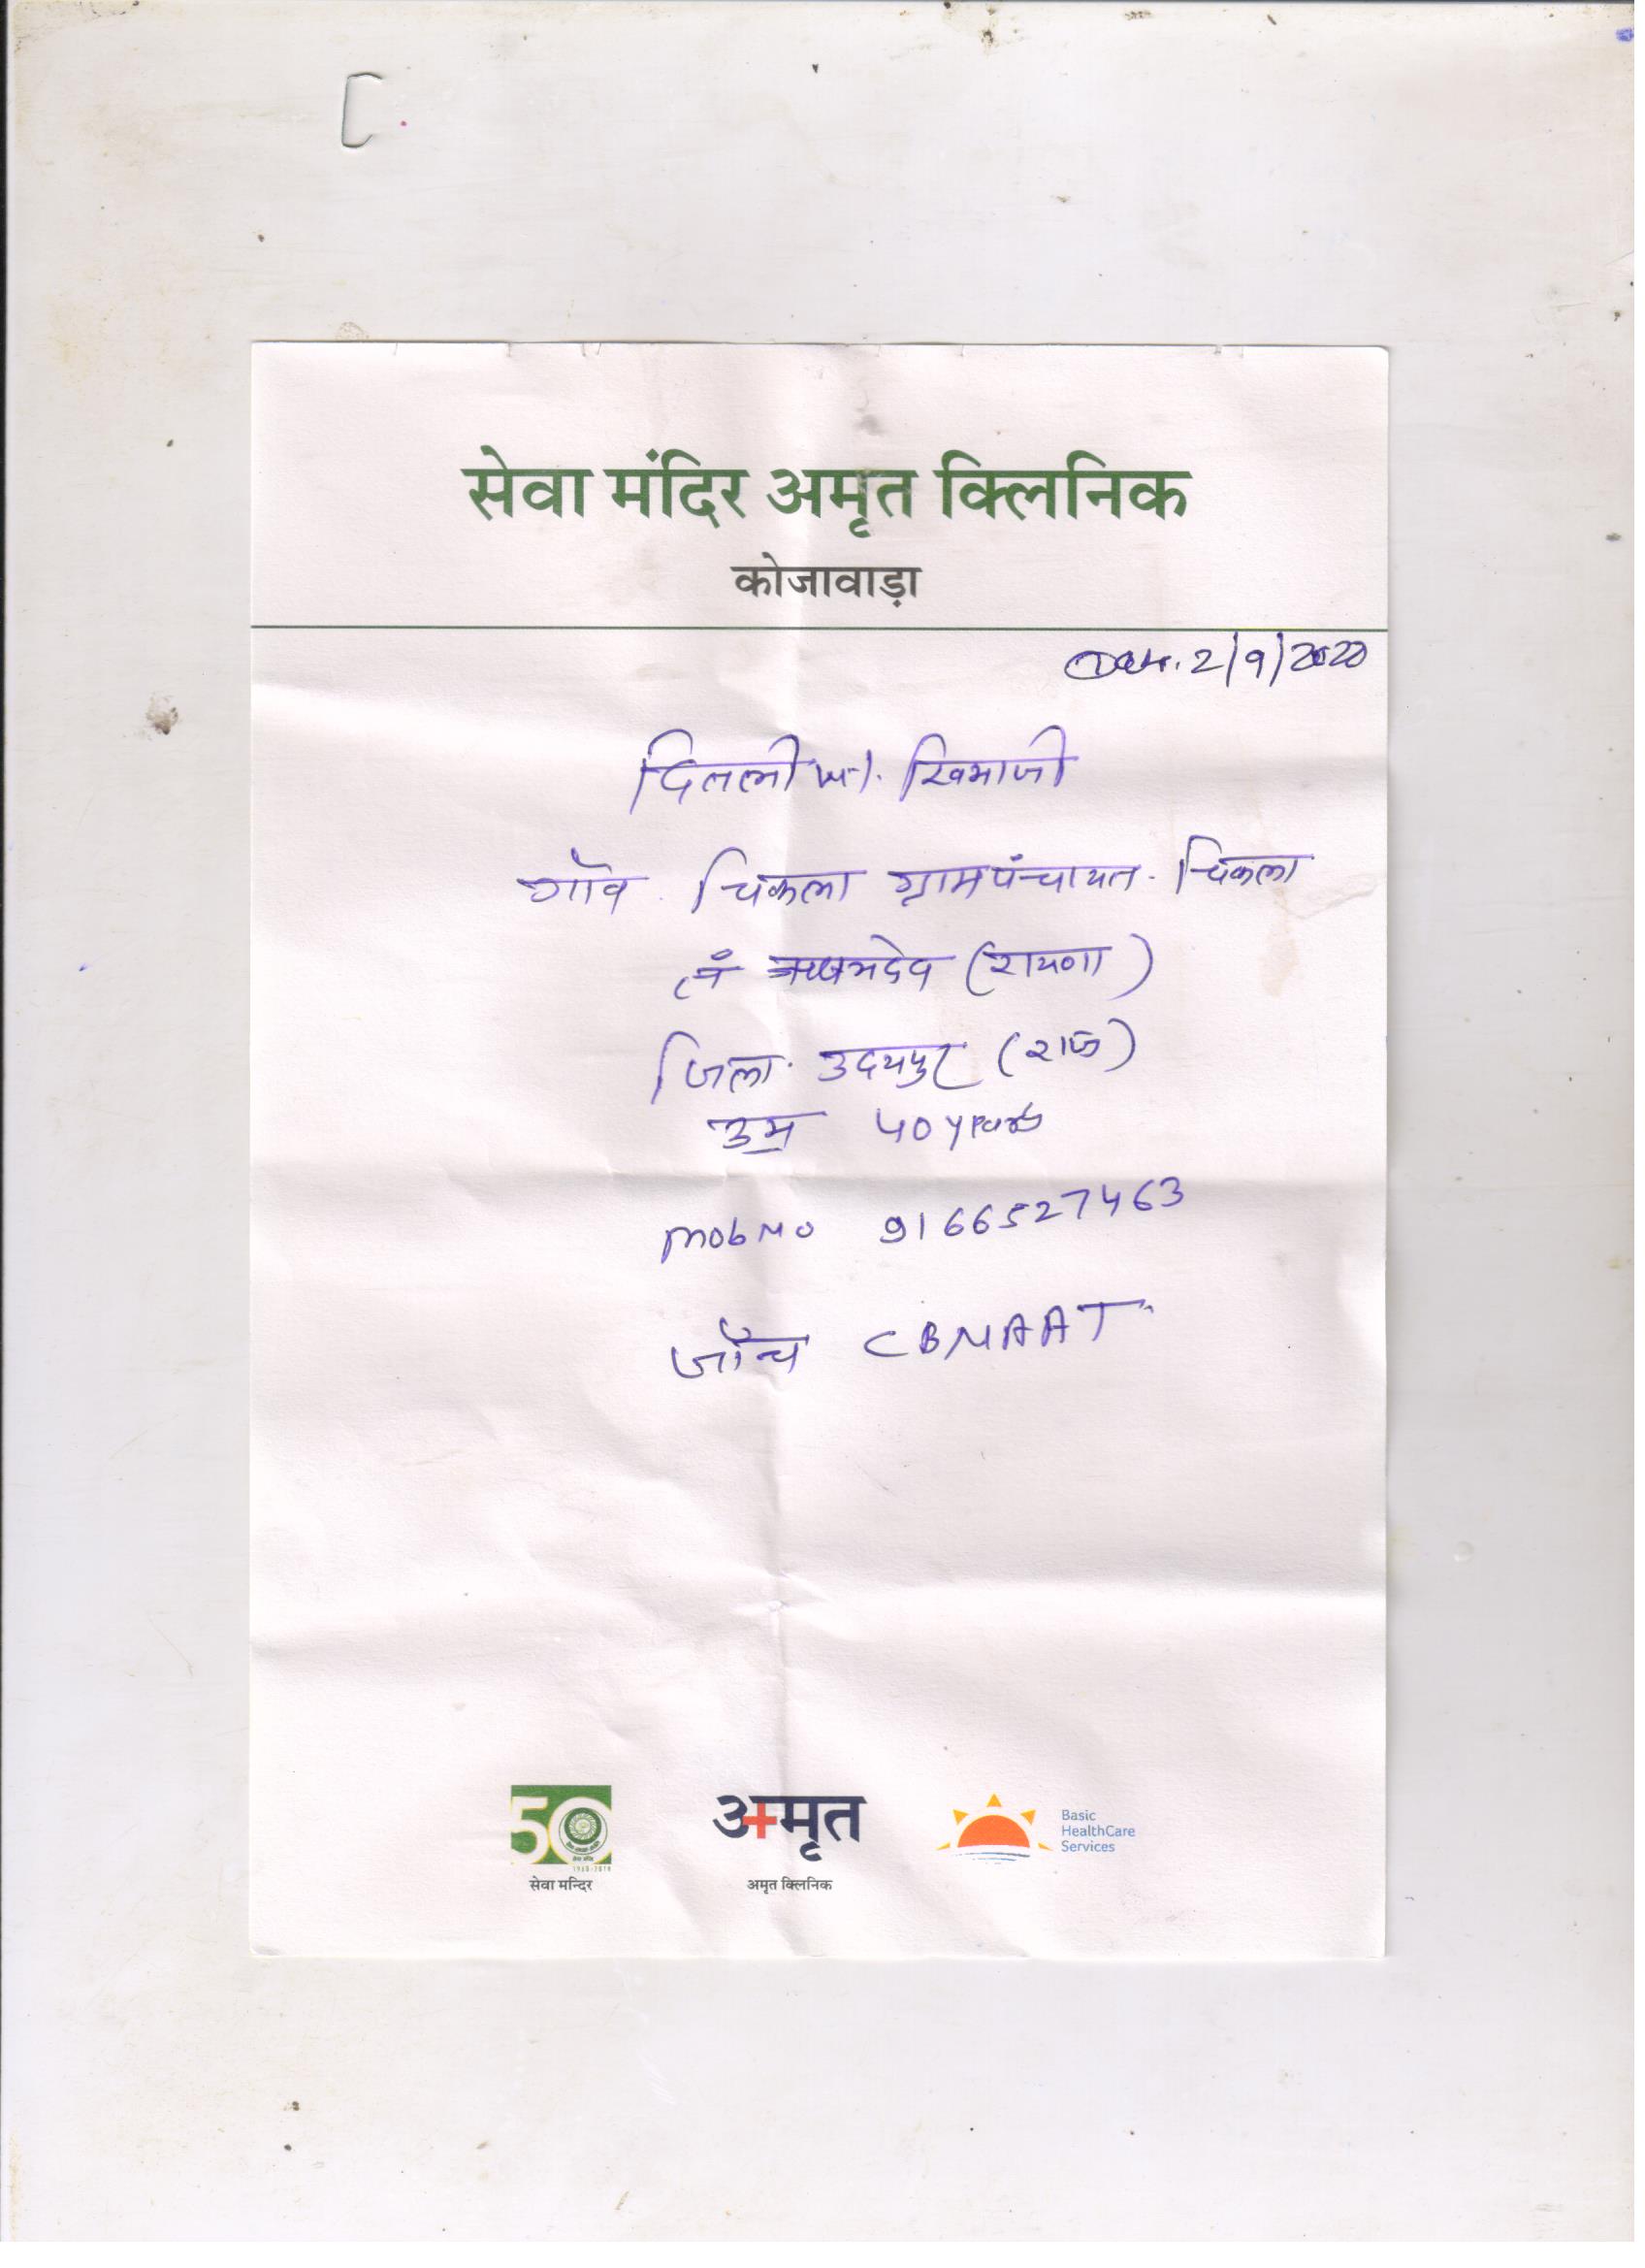 सेवा मंदिर अमृत क्लिनिक
कोजावाड़ा
Date. 2/9/2020
खिमाजी
गाँव. चिकला ग्रामपंचायत. चिकला
ऋषभदेव (रायणा)
जिला. उदयपुर (राज)
उम्र 40 years
mob No 9166527463
जाँच CBNAAT
50
सेवा मन्दिर
अमृत
अमृत क्लिनिक
Basic
HealthCare
Services